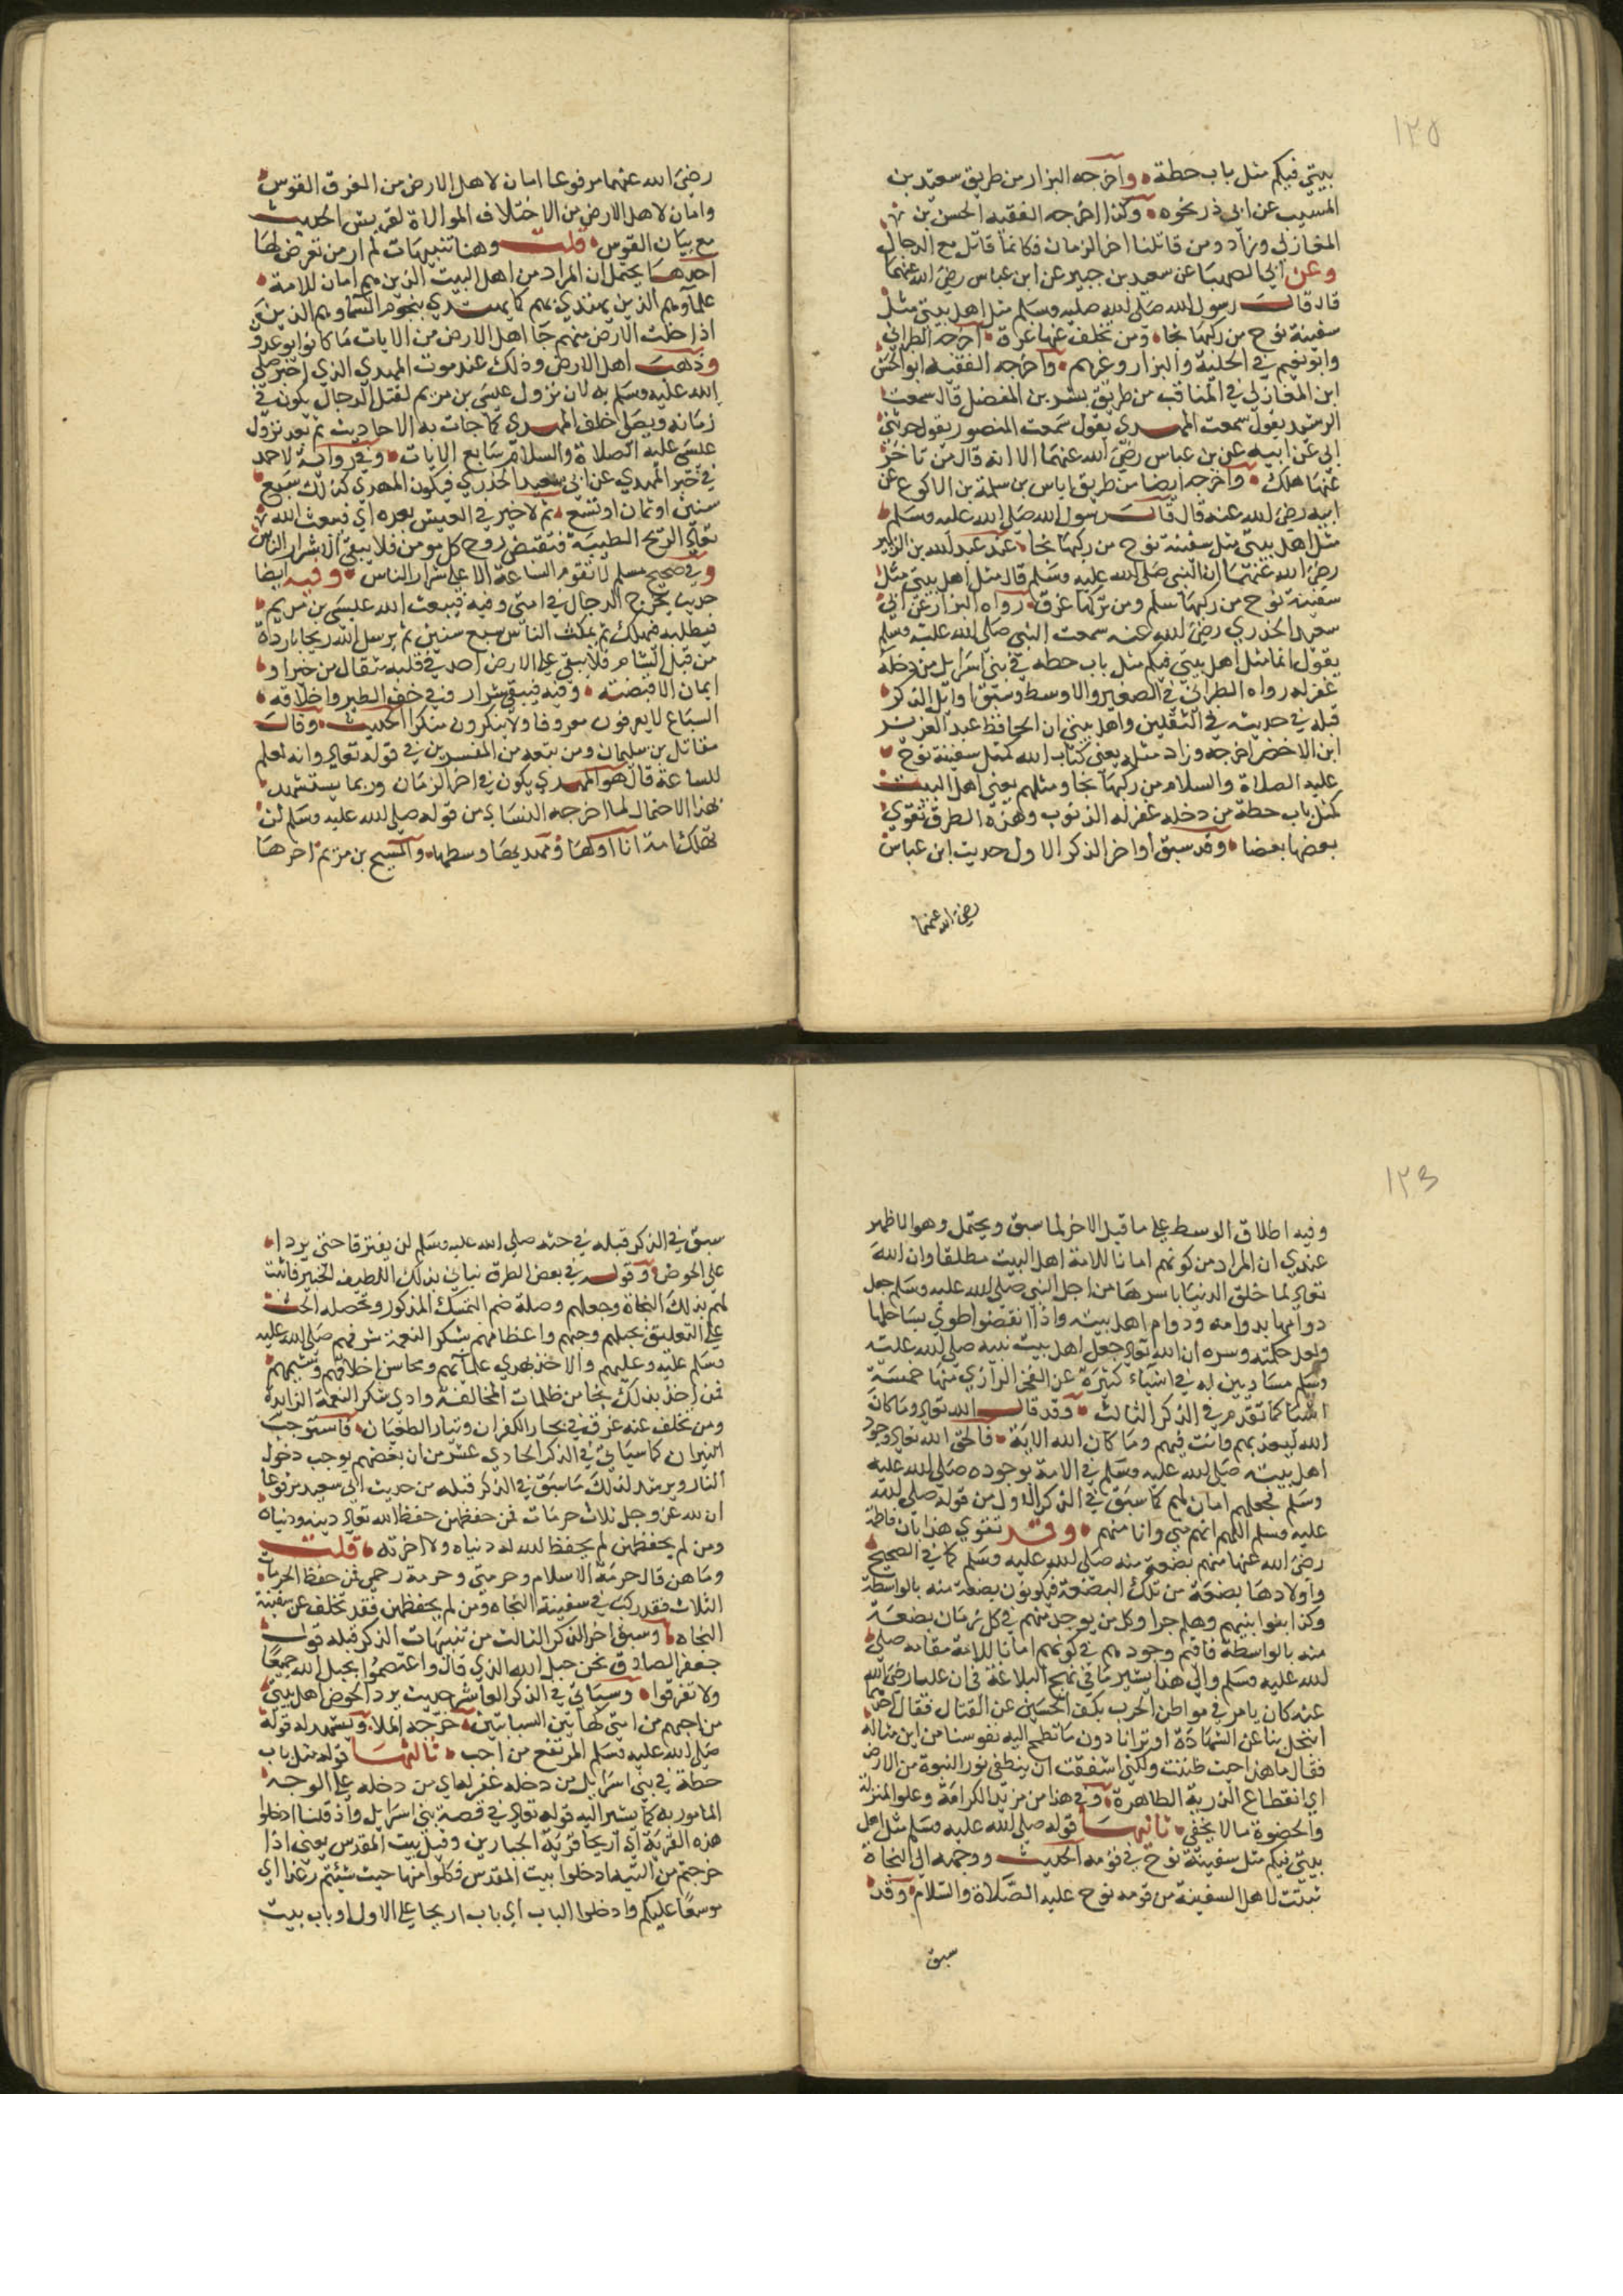 ١٢٥
بيتي فيكم مثل باب حطة واخرجه البزار من طريق سعيد بن
المسيب عن ابي ذر نحوه وكذا اخرجه الفقيه الحسن بن
المغازلي وزاد ومن قاتلنا اخر الزمان فكانما قاتل مع الدجال
وعن ابي الصهبا عن سعيد بن جبير عن ابن عباس رضي الله عنهما
قال قال رسول الله صلى الله عليه وسلم مثل اهل بيتي مثل
سفينة نوح من ركبها نجا ومن تخلف عنها غرق اخرجه الطبراني
وابو نعيم في الحلية والبزار وغيرهم واخرجه الفقيه ابو الحسن
ابن المغازلي في المناقب من طريق بشر بن المفضل قال سمعت
الرشيد يقول سمعت المهدي يقول سمعت المنصور يقول حدثني
ابي عن ابيه عن بن عباس رضي الله عنهما الا انه قال من تاخر
عنها هلك واخرجه ايضا من طريق اياس بن سلمة بن الاكوع عن
ابيه رضي الله عنه قال قال رسول الله صلى الله عليه وسلم
مثل اهل بيتي مثل سفينة نوح من ركبها نجا عن عبد الله بن الزبير
رضي الله عنهما ان النبي صلى الله عليه وسلم قال مثل اهل بيتي مثل
سفينة نوح من ركبها سلم ومن تركها غرق رواه البزار عن ابي
سعيد الخدري رضي الله عنه سمعت النبي صلى الله عليه وسلم
يقول انما مثل اهل بيتي فيكم مثل باب حطه في بني اسرائيل من دخله
غفر له رواه الطبراني في الصغير والاوسط وسبق اوائل الذكر
قبله في حديث في الثقلين واهل بيتي ان الحافظ عبد العزيز
ابن الاخضر اخرجه وزاد مثله يعني كتاب الله كمثل سفينة نوح
عليه الصلاة والسلام من ركبها نجا ومثلهم يعني اهل البيت
كمثل باب حطة من دخله غفر له الذنوب وهذه الطرق تقوي
بعضها بعضا وقد سبق اواخر الذكر الاول حديث ابن عباس
رضي الله عنهما
رضي الله عنهما مرفوعا امان لاهل الارض من الغرق القوس
وامان لاهل الارض من الاختلاف الموالاة لقريش الحديث
مع بيان القوس قلت وهنا تنبيهات لم ار من تعرض لها
احدها يحتمل ان المراد من اهل البيت الذين هم امان للامة
علماؤهم الذين يهتدي بهم كما يهتدي بنجوم السما وهم الذين
اذا خلت الارض منهم جا اهل الارض من الايات ما كانوا يوعدون
وذهب اهل الارض وذلك عند موت المهدي الذي اخبر صلى
الله عليه وسلم به لان نزول عيسى بن مريم لقتل الدجال يكون في
زمانه ويصلي خلف المهدي كما جات به الاحاديث ثم بعد نزول
عيسى عليه الصلاة والسلام تتابع الايات وفي رواية لاحمد
في خبر المهدي عن ابي سعيد الخدري فيكون المهدي كذلك سبع
سنين او ثمان او تسع ثم لا خير في العيش بعده اي فيبعث الله
تعالى الريح الطيبة فتقبض روح كل مومن فلا يبقى الا شرار الناس
وفي صحيح مسلم لا تقوم الساعة الا على شرار الناس وفيه ايضا
حديث يخرج الدجال في امتي وفيه فيبعث الله عيسى بن مريم
فيطلبه فيهلكه ثم يمكث الناس سبع سنين ثم يرسل الله ريحا باردة
من قبل الشام فلا يبقى على الارض احد في قلبه مثقال من خير او
ايمان الا قبضته وفيه فيبقى شرار في خفة الطير واخلاقه
السباع لا يعرفون معروفا ولا ينكرون منكرا الحديث وقال
مقاتل بن سليمان ومن تبعه من المفسرين في قوله تعالى وانه لعلم
للساعة قال هو المهدي يكون في اخر الزمان وربما يستشهد
لهذا الاحتمال لما اخرجه النساي من قوله صلى الله عليه وسلم لن
تهلك امة انا اولها ومهديها وسطها والمسيح بن مريم اخرها
١٢٦
وفيه اطلاق الوسط على ما قبل الاخر لما سبق ويحتمل وهو الاظهر
عندي ان المراد من كونهم امانا للامة اهل البيت مطلقا وان الله
تعالى لما خلق الدنيا باسرها من اجل النبي صلى الله عليه وسلم جعل
دوامها بدوامه ودوام اهل بيته واذا انقضوا طوي بساطها
ولعل حكمته وسره ان الله تعالى جعل اهل بيت نبيه صلى الله عليه
وسلم مساويين له في اشياء كثيرة عن الفخر الرازي منها خمسة
اشيا كما تقدم في الذكر الثالث وقد قال الله تعالى وما كان
الله ليعذبهم وانت فيهم وما كان الله الاية فالحق الله تعالى وجود
اهل بيته صلى الله عليه وسلم في الامة بوجوده صلى الله عليه
وسلم فجعلهم امان لهم كما سبق في الذكر الاول من قوله صلى الله
عليه وسلم اللهم انهم مني وانا منهم وقد تقوي هذا بان فاطمة
رضي الله عنها منهم بضعة منه صلى الله عليه وسلم كما في الصحيح
واولادها بضعة من تلك البضعة فيكونون بضعة منه بالواسطة
وكذا بنوا بنيهم وهلم جرا وكل من يوجد منهم في كل زمان بضعة
منه بالواسطة فاقيم وجودهم في كونهم امانا للامة مقامه صلى
الله عليه وسلم والى هذا يشير ما في نهج البلاغة في ان عليا رضي الله
عنه كان يامر في مواطن الحرب بكف الحسنين عن القتال فقال احدهما
اتبخل بنا عن الشهادة او ترانا دون ما تطمح اليه نفوسنا من اين مثاله
فقال ما هذا حيث ظننت ولكني اشفقت ان ينطفي نور النبوة من الارض
اي انقطاع الذرية الطاهرة وفي هذا من مزيد الكرامة وعلو المنزلة
والحضوة ما لا يخفى ثانيها قوله صلى الله عليه وسلم مثل اهل
بيتي فيكم مثل سفينة نوح في قومه الحديث ووجهه الى النجاة
ثبتت لاهل السفينة من قومه نوح عليه الصلاة والسلام وقد
سبق
سبق في الذكر قبله في حثه صلى الله عليه وسلم لن يفترقا حتى يردا
على الحوض وقوله في بعض الطرق نباني بذلك اللطيف الخبير فاثبت
لهم بذلك النجاة وجعلهم وصلة ضم التمسك المذكور ومحصله الحث
على التعليق بحبلهم وحبهم واعظامهم شكر النعمة شرفهم صلى الله عليه
وسلم عليه وعليهم والاخذ بهدي علمائهم ومحاسن اخلاقهم وشيمهم
فمن اخذ بذلك نجا من ظلمات المخالفة وادي شكر النعمة الزايدة
ومن تخلف عنه غرق في بحار الكفران وتيار الطغيان فاستوجب
النيران كما سياتي في الذكر الحادي عشر من ان بغضهم يوجب دخول
النار ويرشد لذلك ما سبق في الذكر قبله من حديث ابي سعيد مرفوعا
ان لله عز وجل ثلاث حرمات فمن حفظهن حفظ الله تعالى دينه ودنياه
ومن لم يحفظهن لم يحفظ الله له دنياه ولا اخرته قلت
وما هن قال حرمة الاسلام وحرمتي وحرمة رحمي فمن حفظ الحرمات
الثلاث فقد ركب في سفينة النجاه ومن لم يحفظهن فقد تخلف عن سفينة
النجاه وسبق اخر الذكر الثالث من تنبيهات الذكر قبله قول
جعفر الصادق نحن حبل الله الذي قال واعتصموا بحبل الله جميعا
ولا تفرقوا وسياتي في الذكر العاشر حديث يرد الحوض اهل بيتي
من احبهم من امتي كهاتين السبابتين خرجه الملا ويشهد له قوله
صلى الله عليه وسلم المر تفع من احب ثالثها قوله مثل باب
حطة في بني اسرائيل من دخله غفر له اي من دخله على الوجه
المامور به كما يشير اليه قوله تعالى في قصة بني اسرائيل واذ قلنا ادخلوا
هذه القرية اي اريحا قرية الجبارين وقيل بيت المقدس يعني اذا
خرجتم من التيه ادخلوا بيت المقدس فكلوا منها حيث شئتم رغدا اي
موسعا عليكم وادخلوا الباب اي باب اريحا على الاول او باب بيت